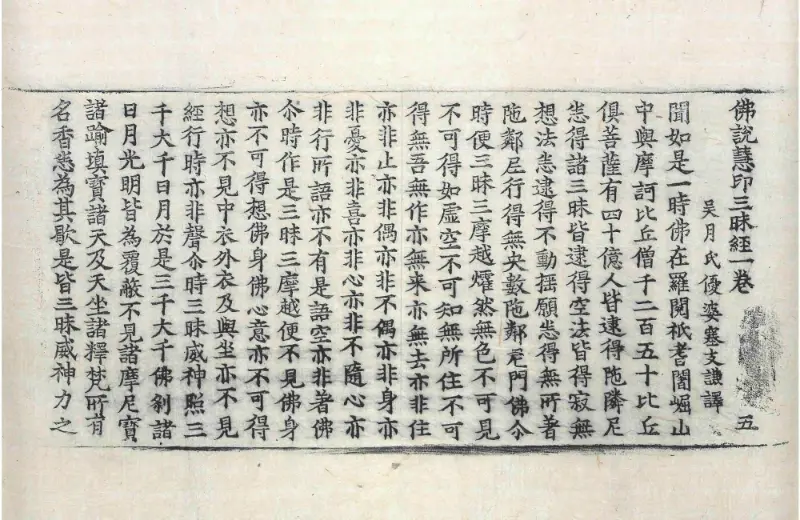 佛說慧印三昧經一卷 五
吳月氏優婆塞支謙譯
聞如是一時佛在羅閱祇耆闍崛山
中與摩訶比丘僧千二百五十比丘
俱菩薩有四十億人皆逮得陁隣尼
悉得諸三昧皆逮得空法皆得寂無
想法悉逮得不動揺願悉得無所著
陁鄰尼行得無央數陁鄰尼門佛尒
時便三昧三摩越㸌然無色不可見
不可得如虛空不可知無所住不可
得無吾無作亦無來亦無去亦非住
亦非止亦非偶亦非不偶亦非身亦
非憂亦非喜亦非心亦非不隨心亦
非行所語亦不有是語空亦非著佛
尒時作是三昧三摩越便不見佛身
亦不可得想佛身佛心意亦不可得
想亦不見中衣外衣及與坐亦不見
經行時亦非聲尒時三昧威神照三
千大千日月於是三千大千佛剎諸
日月光明皆為覆蔽不見諸摩尼寶
諸踰填寶諸天及天坐諸釋梵所有
名香悉為其歇是皆三昧威神力之